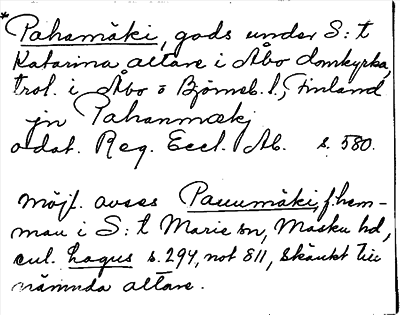 * Pahamäki, gods under S:t
Katarina altare i Åbo domkyrka,
trol. i Åbo o Björneb. l., Finland
jn Pahanmækj
odat. Reg. Eccl. Ab. s. 580.
Möjl. avses Pauumäki, f. hem-
man i S:t Marie sn, Masku hd,
enl. Lagus s. 294, not 811, skänkt till
nämnda altare.